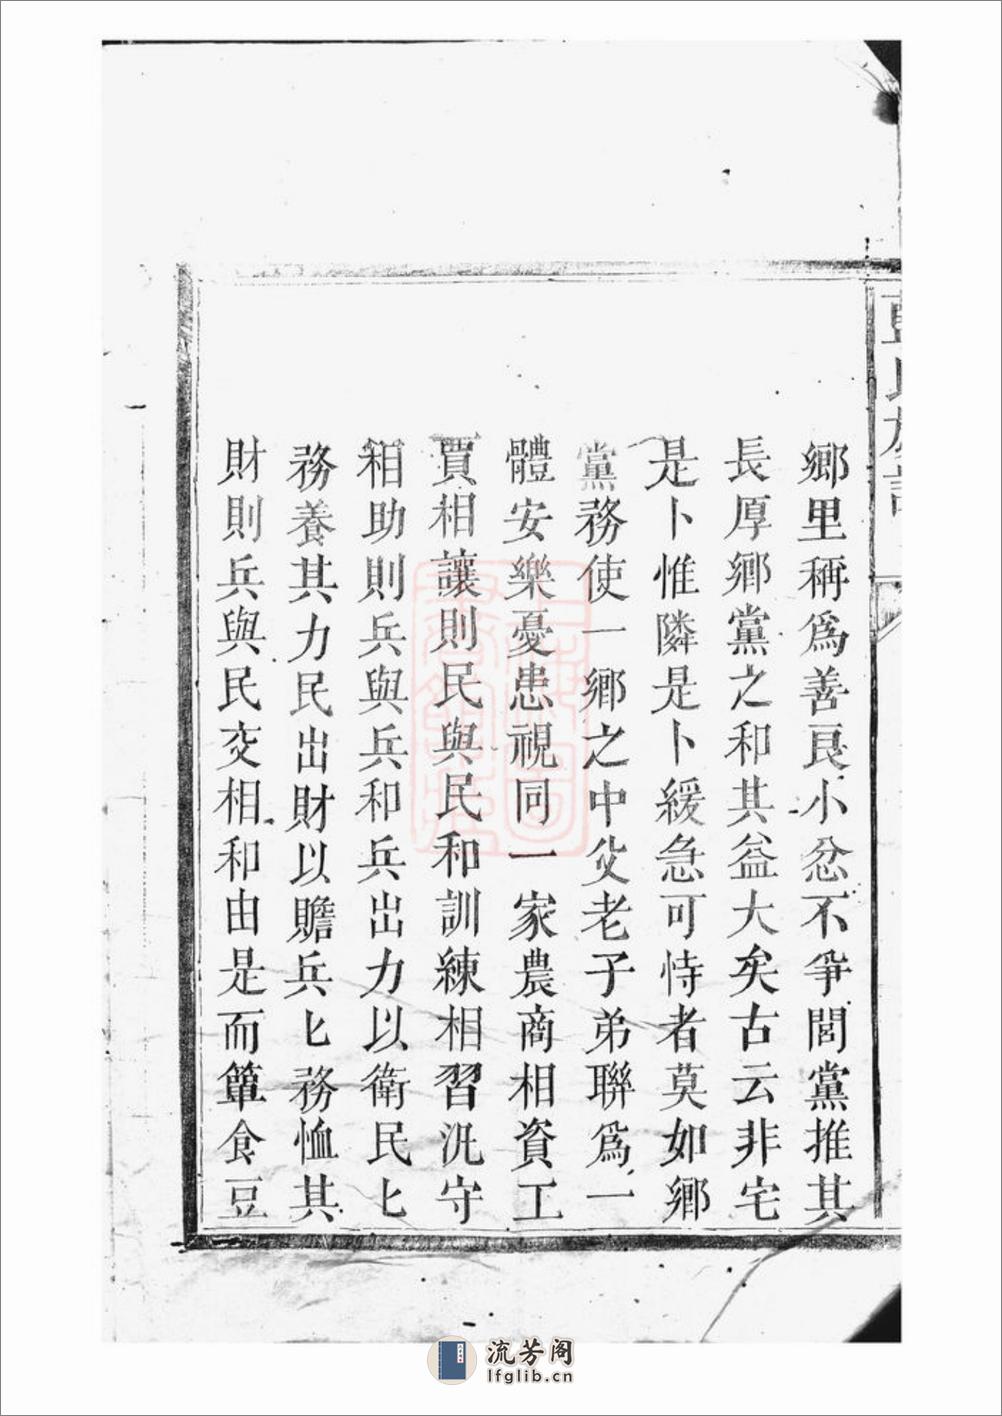 鄉里稱爲善良小忿不爭閭黨推其
長厚鄉黨之和其益大矣古云非宅
是卜惟隣是卜緩急可恃者莫如鄉
黨務使一鄉之中父老子弟聯爲一
體安樂憂患視同一家農商相資工
賈相讓則民與民和訓練相習汛守
相助則兵與兵和兵出力以衛民匕
務養其力民出財以贍兵匕務恤其
財則兵與民交相和由是而簞食豆
流芳阁
lfglib.cn